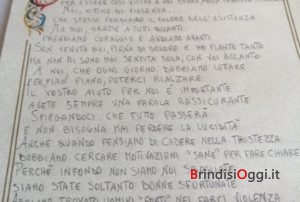 PER ESSERE COSÌ VICINE A NOI DONNE
NOI, VITTIME DI VIOLENZE.
CHE SPESSE PERDIAMO IL VALORE DELL'ESISTENZA
MA POI, GRAZIE A TUTTI QUANTI
PRENDIAMO CORAGGIO E ANDIAMO AVANTI
SON VENUTA QUI, PIENA DI DOLORE E HO PIANTO TANTO
MA NON MI SONO MAI SENTITA SOLA, CON VOI ACCANTO
A NOI, CHE OGNI GIORNO DOBBIAMO LOTTARE
PER PIAN PIANO, POTERCI RIALZARE
IL VOSTRO AIUTO PER NOI È IMPORTANTE
AVETE SEMPRE UNA PAROLA RASSICURANTE
SPIEGANDOCI CHE TUTTO PASSERÀ
E NON BISOGNA MAI PERDERE LA LUCIDITÀ
ANCHE QUANDO PENSIAMO DI CADERE NELLA TRISTEZZA
DOBBIAMO CERCARE MOTIVAZIONI "SANE" PER FARE CHIARE
PERCHÉ INFONDO NON SIAMO NOI
SIAMO STATE SOLTANTO DONNE SFORTUNATE
TROVATO UOMINI "FORTI" NEL FARCI VIOLENZA
BrindisiOggi.it